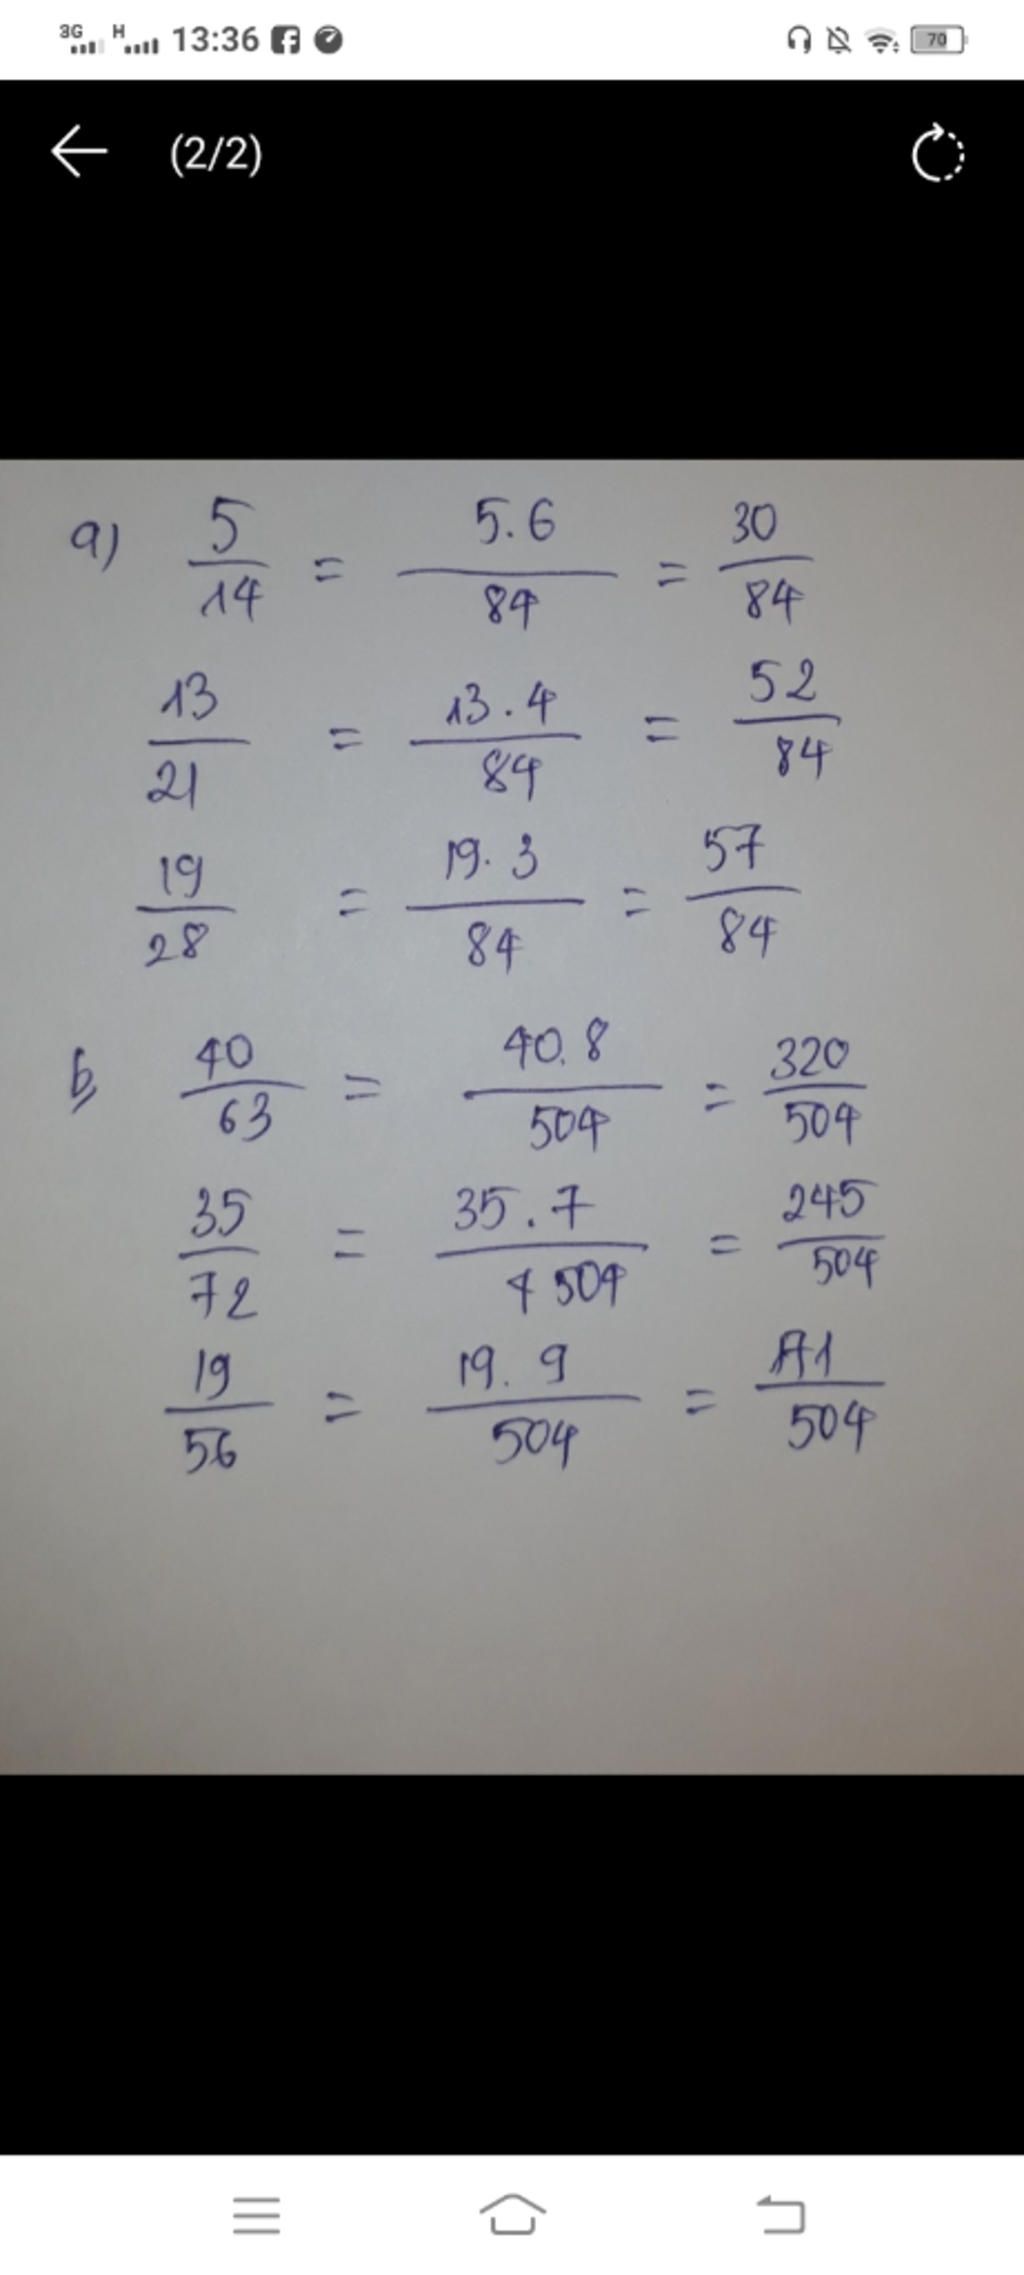 3G H 13:36 70
(2/2)
a) 5/14 = 5.6/84 = 30/84
13/21 = 13.4/84 = 52/84
19/28 = 19.3/84 = 57/84
b, 40/63 = 40.8/504 = 320/504
35/72 = 35.7/504 = 245/504
19/56 = 19.9/504 = 171/504